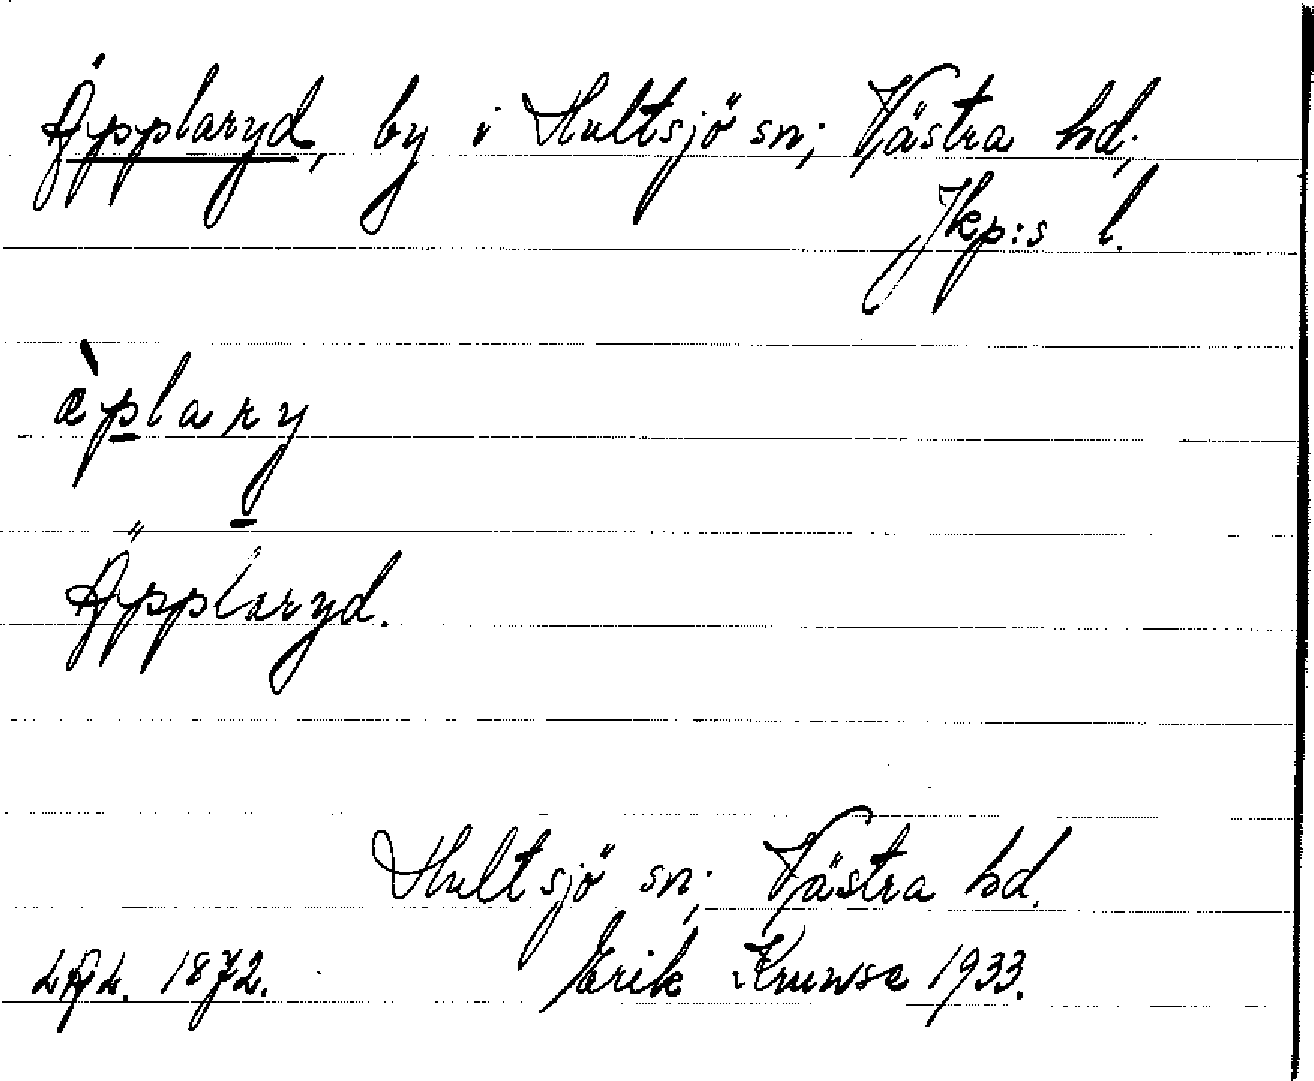 Äpplaryd, by i Hultsjö sn; Västra hd;
Jkp:s l.
æ̀plary
Äpplaryd.
Hultsjö sn; Västra hd.
1872. Erik Kruuse 1933.